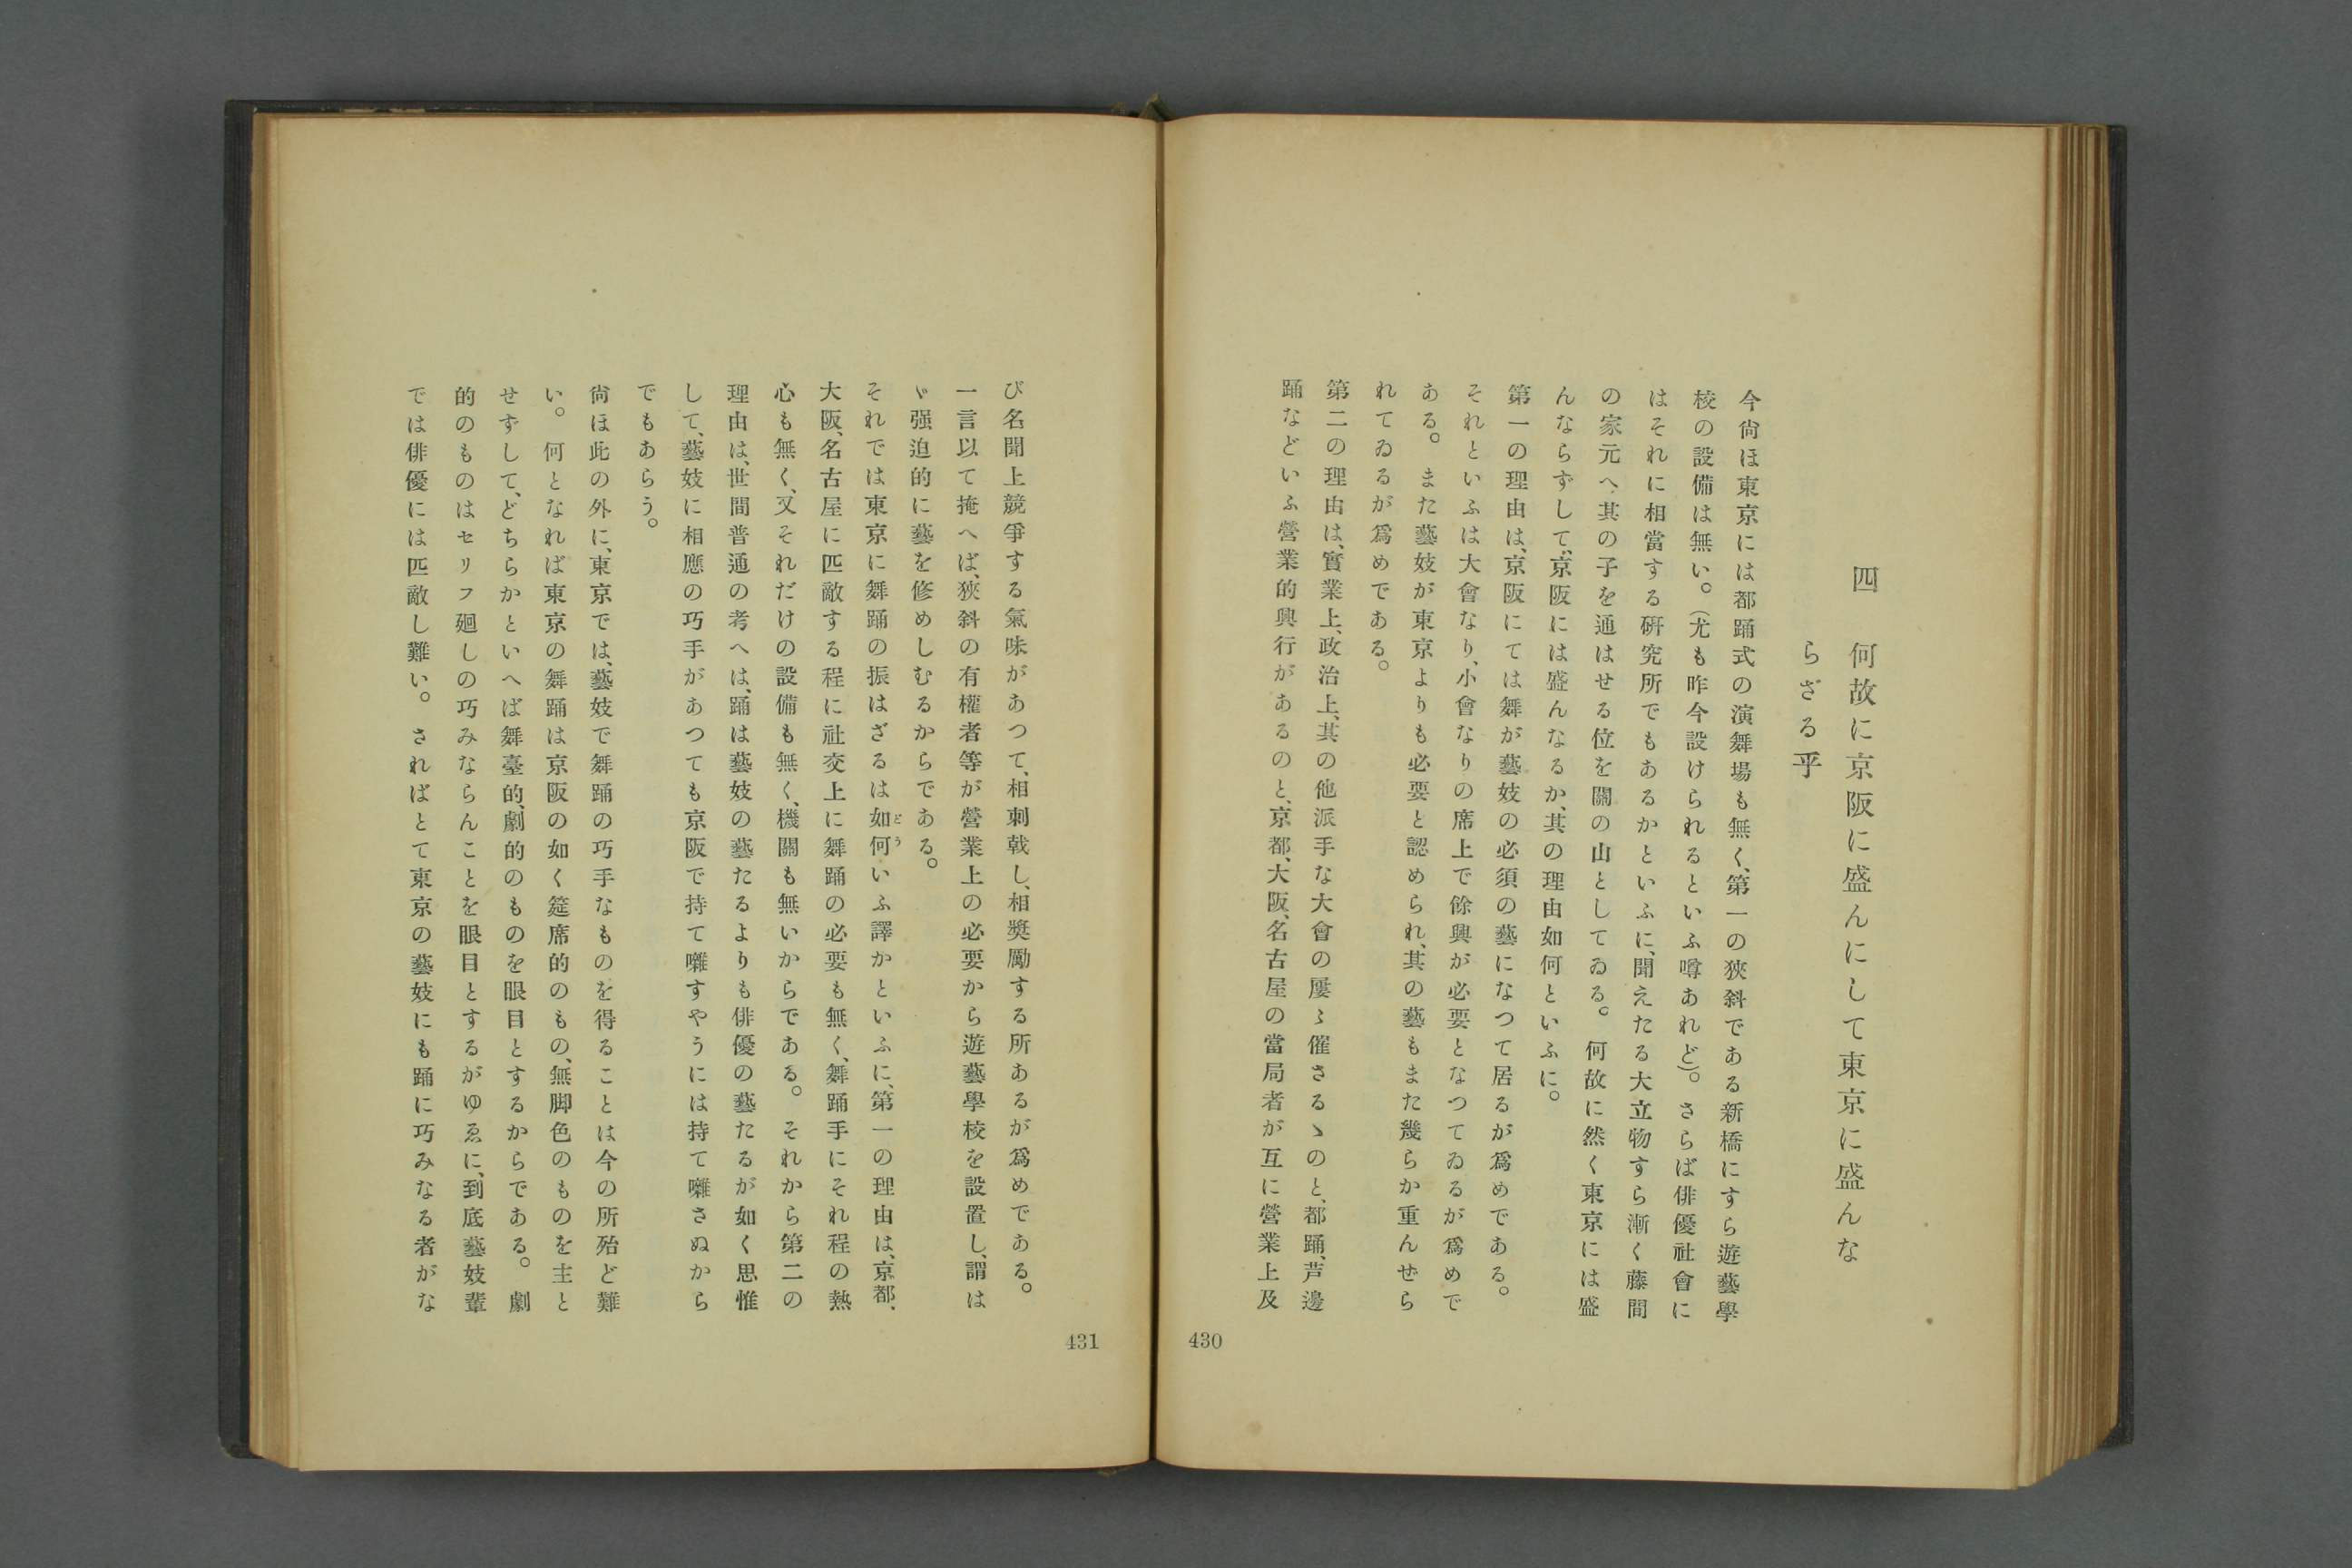 四　何故に京阪に盛んにして東京に盛んな
らざる乎
今尙ほ東京には都踊式の演舞場も無く、第一の狹斜である新橋にすら遊藝學
校の設備は無い。（尤も昨今設けられるといふ噂あれど）。さらば俳優社會に
はそれに相當する硏究所でもあるかといふに、聞えたる大立物すら漸く藤間
の家元へ其の子を通はせる位を關の山としてゐる。何故に然く東京には盛
んならずして、京阪には盛んなるか、其の理由如何といふに。
第一の理由は、京阪にては舞が藝妓の必須の藝になつて居るが爲めである。
それといふは大會なり、小會なりの席上で餘興が必要となつてゐるが爲めで
ある。また藝妓が東京よりも必要と認められ、其の藝もまた幾らか重んせら
れてゐるが爲めである。
第二の理由は、實業上、政治上、其の他派手な大會の屢〻催さるゝのと、都踊、芦邊
踊などいふ營業的興行があるのと、京都、大阪、名古屋の當局者が互に營業上及
430
び名聞上競爭する氣味があつて、相刺戟し、相奬勵する所あるが爲めである。
一言以て掩へば、狹斜の有權者等が營業上の必要から遊藝學校を設置し、謂は
ゞ强迫的に藝を修めしむるからである。
それでは東京に舞踊の振はざるは如何どういふ譯かといふに、第一の理由は、京都、
大阪、名古屋に匹敵する程に社交上に舞踊の必要も無く、舞踊手にそれ程の熱
心も無く、又それだけの設備も無く、機關も無いからである。それから第二の
理由は、世間普通の考へは、踊は藝妓の藝たるよりも俳優の藝たるが如く思惟
して、藝妓に相應の巧手があつても京阪で持て囃すやうには持て囃さぬから
でもあらう。
尙ほ此の外に、東京では、藝妓で舞踊の巧手なものを得ることは今の所殆ど難
い。何となれば東京の舞踊は京阪の如く筵席的のもの、無脚色のものを主と
せずして、どちらかといへば舞臺的、劇的のものを眼目とするからである。劇
的のものはセリフ廻しの巧みならんことを眼目とするがゆゑに、到底藝妓輩
では俳優には匹敵し難い。さればとて東京の藝妓にも踊に巧みなる者がな
431